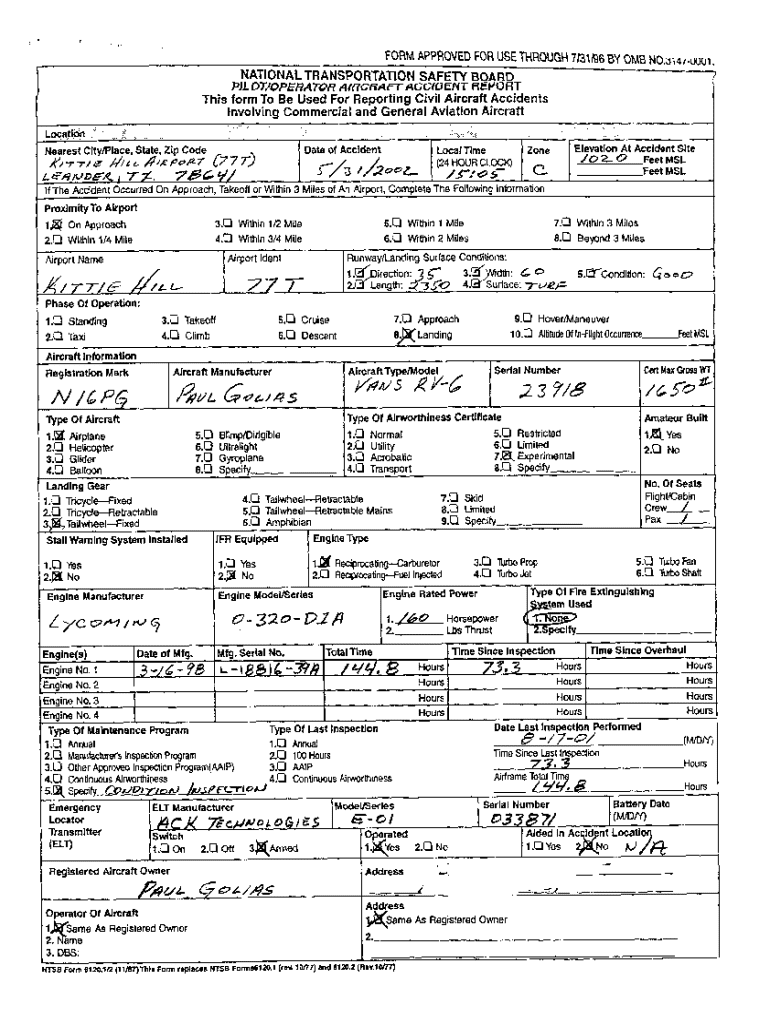 FORM APPROVED FOR USE THROUGH 7/31/96 BY OMB NO.3147-0001.
NATIONAL TRANSPORTATION SAFETY BOARD
PILOT/OPERATOR AIRCRAFT ACCIDENT REPORT
This form To Be Used For Reporting Civil Aircraft Accidents
Involving Commercial and General Aviation Aircraft
Location
Nearest City/Place, State, Zip Code Date of Accident Local Time Zone Elevation At Accident Site
KITTIE HILL AIRPORT (77T) 5/31/2002 (24 HOUR CLOCK) C 1020 Feet MSL
LEANDER, TX. 78641 15:05 Feet MSL
If The Accident Occurred On Approach, Takeoff or Within 3 Miles of An Airport, Complete The Following Information
Proximity To Airport
1.☒ On Approach 3.☐ Within 1/2 Mile 5.☐ Within 1 Mile 7.☐ Within 3 Miles
2.☐ Within 1/4 Mile 4.☐ Within 3/4 Mile 6.☐ Within 2 Miles 8.☐ Beyond 3 Miles
Airport Name Airport Ident Runway/Landing Surface Conditions:
KITTIE HILL 77T 1.☑ Direction: 35 3.☑ Width: 60 5.☑ Condition: GOOD
2.☑ Length: 2350 4.☑ Surface: TURF
Phase Of Operation:
1.☐ Standing 3.☐ Takeoff 5.☐ Cruise 7.☐ Approach 9.☐ Hover/Maneuver
2.☐ Taxi 4.☐ Climb 6.☐ Descent 8.☒ Landing 10.☐ Altitude Of In-Flight Occurrence Feet MSL
Aircraft Information
Registration Mark Aircraft Manufacturer Aircraft Type/Model Serial Number Cert Max Gross WT
N16PG PAUL GOLIAS VANS RV-6 23918 1650 #
Type Of Aircraft Type Of Airworthiness Certificate Amateur Built
1.☒ Airplane 5.☐ Blimp/Dirigible 1.☐ Normal 5.☐ Restricted 1.☒ Yes
2.☐ Helicopter 6.☐ Ultralight 2.☐ Utility 6.☐ Limited 2.☐ No
3.☐ Glider 7.☐ Gyroplane 3.☐ Acrobatic 7.☒ Experimental
4.☐ Balloon 8.☐ Specify 4.☐ Transport 8.☐ Specify
Landing Gear No. Of Seats
1.☐ Tricycle—Fixed 4.☐ Tailwheel—Retractable 7.☐ Skid Flight/Cabin
2.☐ Tricycle—Retractable 5.☐ Tailwheel—Retractable Mains 8.☐ Limited Crew 1
3.☒ Tailwheel—Fixed 6.☐ Amphibian 9.☐ Specify Pax 1
Stall Warning System Installed IFR Equipped Engine Type
1.☐ Yes 1.☐ Yes 1.☒ Reciprocating—Carburetor 3.☐ Turbo Prop 5.☐ Turbo Fan
2.☒ No 2.☒ No 2.☐ Reciprocating—Fuel Injected 4.☐ Turbo Jet 6.☐ Turbo Shaft
Engine Manufacturer Engine Model/Series Engine Rated Power Type Of Fire Extinguishing
System Used
LYCOMING O-320-D1A 1. 160 Horsepower 1. None
2. Lbs Thrust 2.Specify
Engine(s) Date of Mfg. Mfg. Serial No. Total Time Time Since Inspection Time Since Overhaul
Engine No. 1 3-16-98 L-18816-39A 144.8 Hours 73.3 Hours Hours
Engine No. 2 Hours Hours Hours
Engine No. 3 Hours Hours Hours
Engine No. 4 Hours Hours Hours
Type Of Maintenance Program Type Of Last Inspection Date Last Inspection Performed
1.☐ Annual 1.☐ Annual 8-17-01 (M/D/Y)
2.☐ Manufacturer's Inspection Program 2.☐ 100 Hours Time Since Last Inspection
3.☐ Other Approved Inspection Program(AAIP) 3.☐ AAIP 73.3 Hours
4.☐ Continuous Airworthiness 4.☐ Continuous Airworthiness Airframe Total Time
5.☒ Specify CONDITION INSPECTION 144.8 Hours
Emergency ELT Manufacturer Model/Series Serial Number Battery Date
Locator ACK TECHNOLOGIES E-01 033871 (M/D/Y)
Transmitter Switch Operated Aided In Accident Location
(ELT) 1.☐ On 2.☐ Off 3.☒ Armed 1.☒ Yes 2.☐ No 1.☐ Yes 2.☒ No N/A
Registered Aircraft Owner Address
PAUL GOLIAS
Operator Of Aircraft Address
1.☒ Same As Registered Owner 1.☒ Same As Registered Owner
2. Name 2.
3. DBS:
NTSB Form 6120.1/2 (11/87) This Form replaces NTSB Forms 6120.1 (rev. 10/77) and 6120.2 (Rev.10/77)